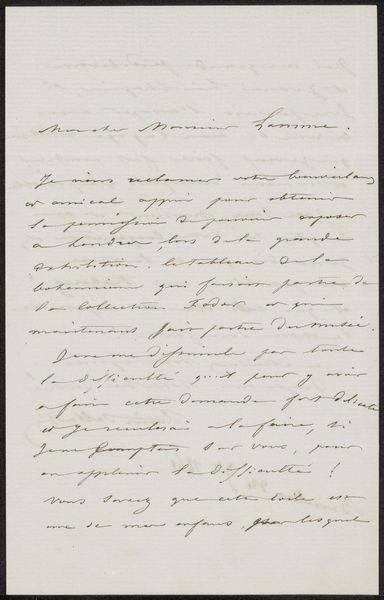 Mon cher Monsieur Lamme.
Je viens reclamer votre bienveillant
et amical appui pour obtenir
la permission de pouvoir exposer
a Londres, lors de la grande
exhibition. le tableau de la
bohemienne qui faisait partie de
la Collection Fodor et qui
maintenant fait partie du Musée.
Je ne me dissimule pas toute
la difficultté qu'il peut y avoir
a faire cette demande fort délicate
et je renoncerais a la faire, si
je ne Comptais sur vous, pour
en applanir la difficultté!
Vous savez que cette toile est
une de mes enfans, pour lesquels